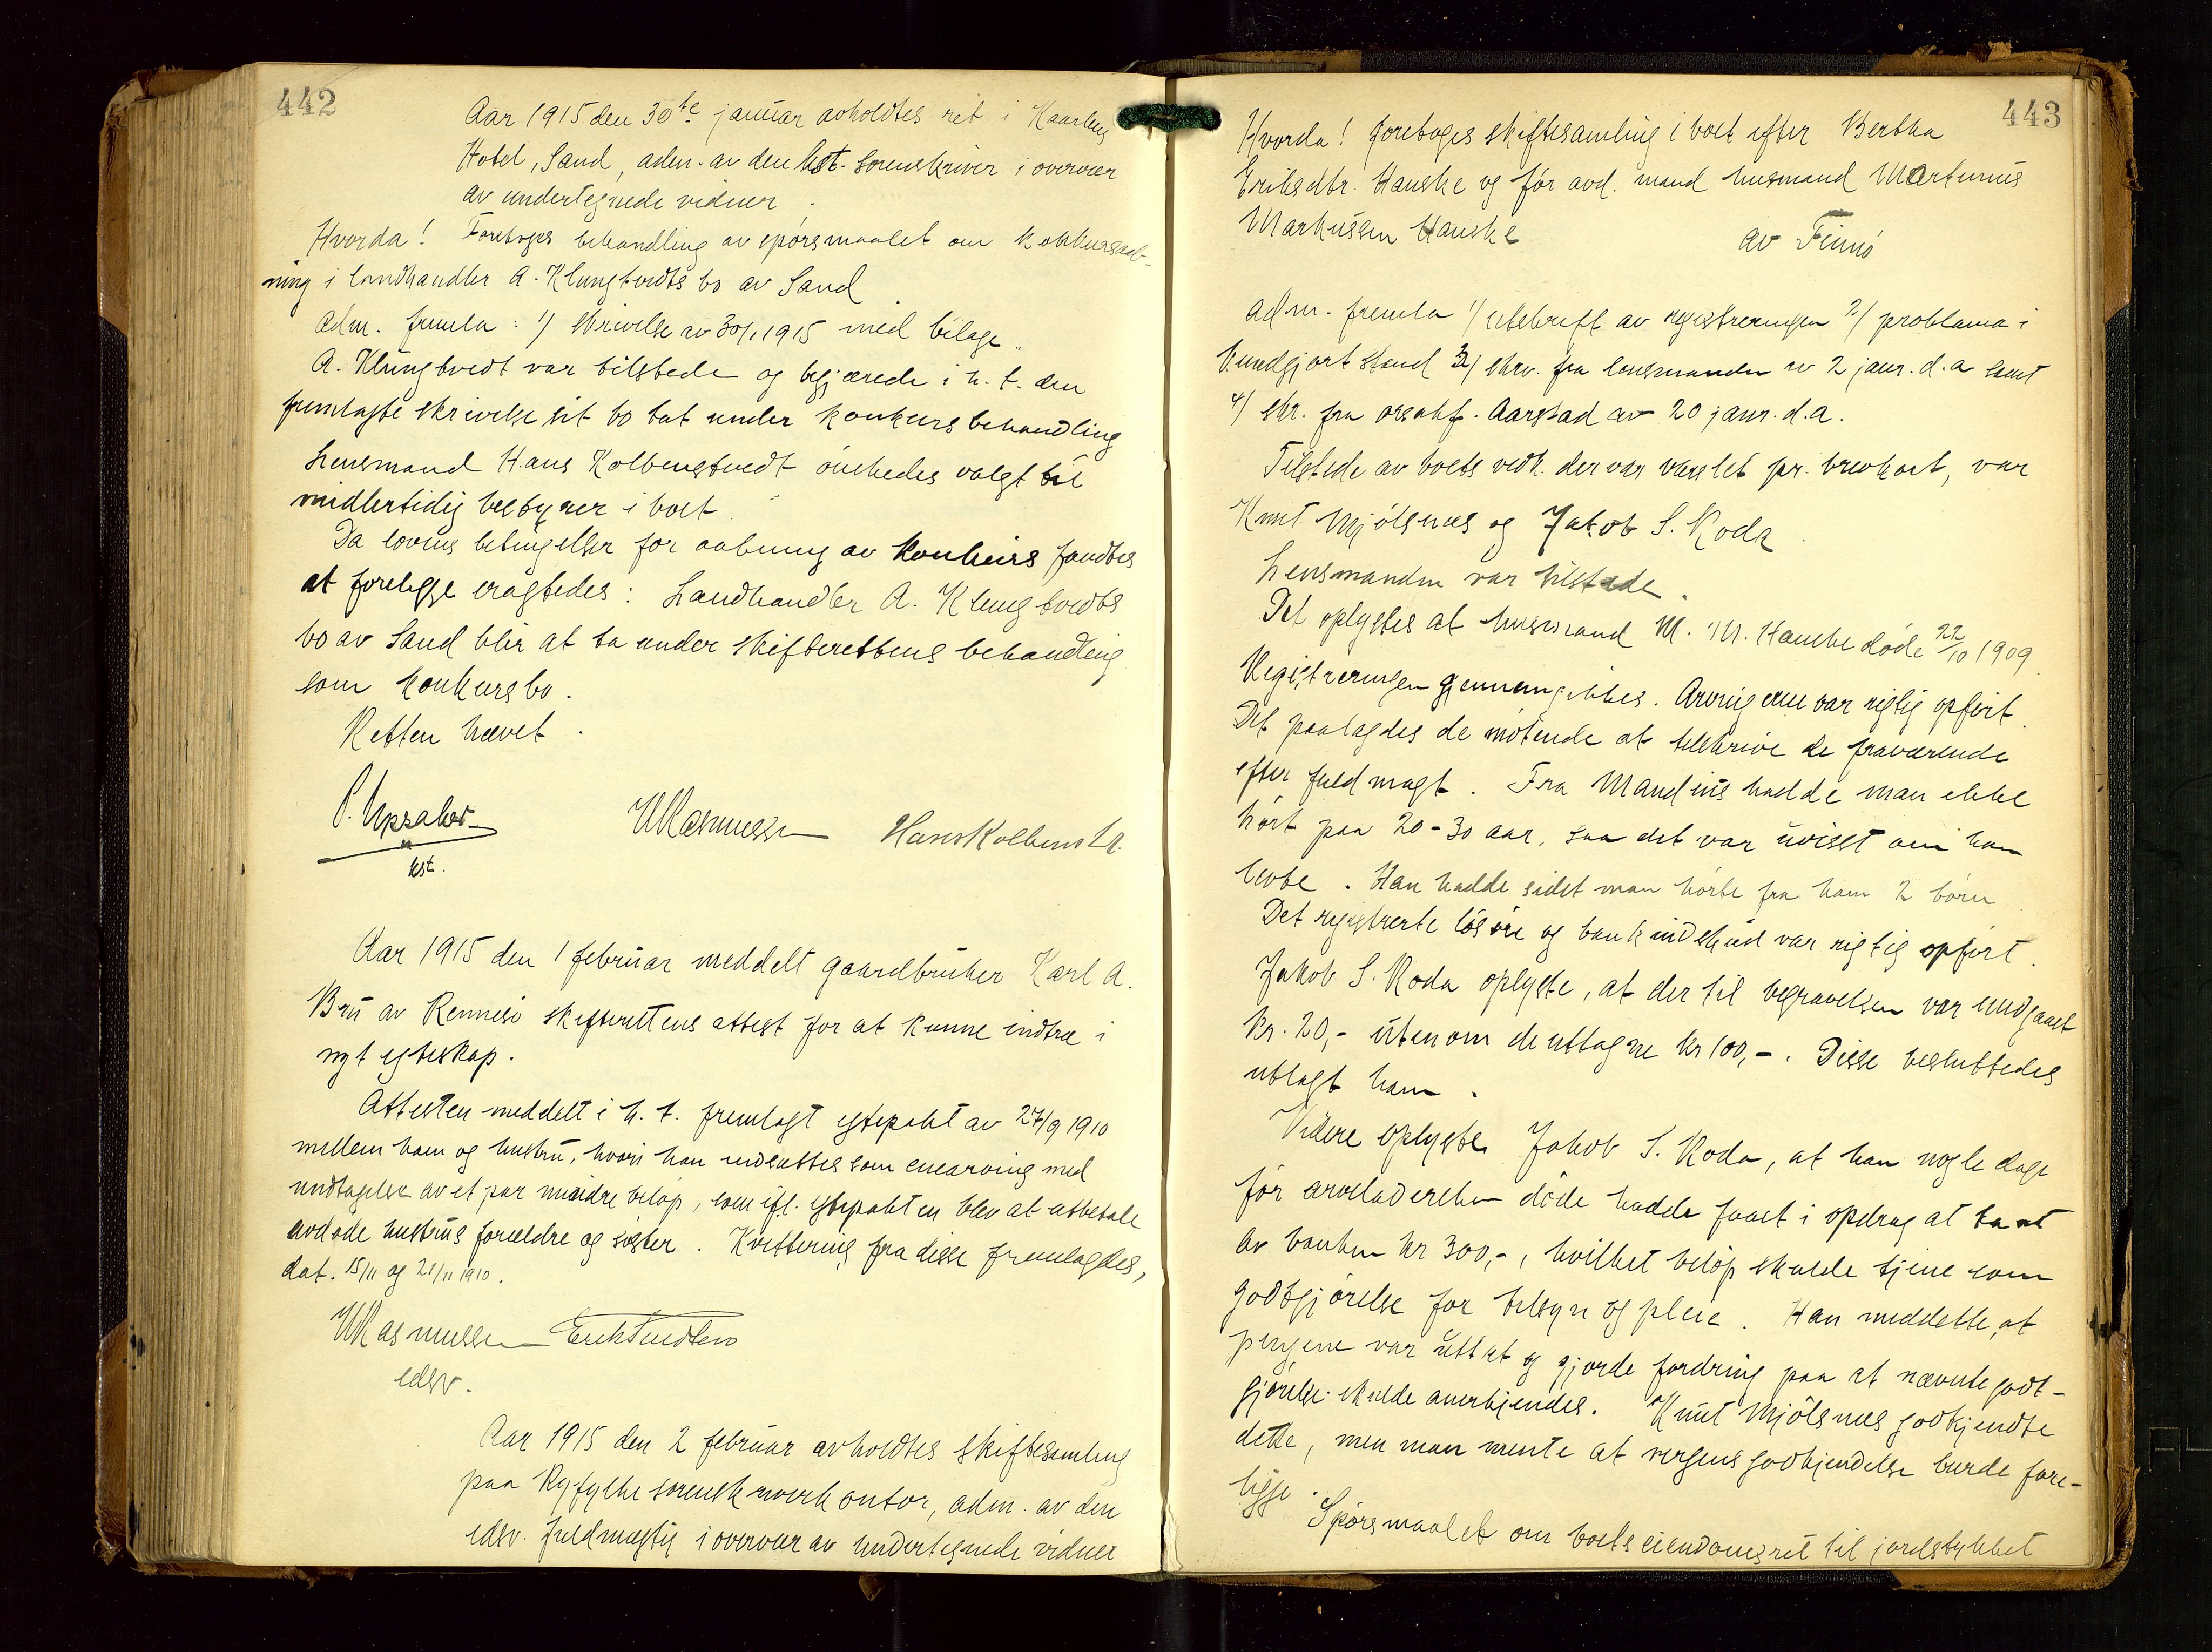 442
Aar 1915 den 30te januar avholdtes ret i Kaarhus
Hotel, Sand, adm. av den kst. sorenskriver i overvær
av undertegnede vidner.
Hvorda! Foretoges behandling av spørsmaalet om konkursaab-
ning i landhandler A. Klungtvedts bo av Sand
Adm. fremla: 1/ skrivelse av 30/1 1915 med bilage.
A. Klungtvedt var tilstede og begjærede i h. t. den
fremlagte skrivelse sit bo tat under konkursbehandling
Lensmand Hans Kolbenstvedt ønskedes valgt til
midlertidig bestyrer i boet
Da lovens betingelser for aabning av konkurs fandtes
at foreligge eragtedes: Landhandler A. Klungtvedts
bo av Sand blir at ta under skifterettens behandling
som konkursbo.
Retten hævet.
P. Upsaker
kst.
W Rasmussen Hans Kolbenstv.
Aar 1915 den 1 februar meddelt gaardbruker Karl A.
Bru av Rennesø skifterettens attest for at kunne indtræ i
nyt egteskap.
Attesten meddelt i h. t. fremlagt egtepakt av 27/9 1910
mellem ham og hustru, hvori han indsattes som enearving med
undtagelse av et par mindre beløp, som ifl. egtepakten blev at utbetale
avdøde hustrus forældre og søster. Kvittering fra disse fremlagdes,
dat. 15/11 og 21/11 1910.
W Rasmussen
edsv.
Aar 1915 den 2 februar avholdtes skiftesamling
paa Ryfylke sorenskriverkontor, adm. av den
edsv. fuldmægtig i overvær av undertegnede vidner
443
Hvorda! foretoges skiftesamling i boet efter Bertha
Eriksdtr. Hauske og før avd. mand husmand Martinus
Markussen Hauske av Finnø
Adm. fremla 1/ utskrift av registreringen 2/ proklama i
kundgjort stand 3/ skrv. fra lensmanden av 2 janr. d.a samt
4/ skr. fra orsakf. Aarstad av 20 janr. d.a.
Tilstede av boets vedk. der var varslet pr. brevkort, var
Knut Mjølsnes og Jakob S. Roda.
Lensmanden var tilstede.
Det oplystes at husmand M. M. Hauske døde 22/10 1909.
Registreringen gjennemgikkes. Arvingerne var rigtig opført.
Det paalagdes de møtende at tilskrive de fraværende
efter fuldmagt. Fra Mandius hadde man ikke
hørt paa 20-30 aar, saa det var uvisst om han
levte. Han hadde sidst man hørte fra ham 2 børn
Det registrerte løsøre og bankindskud var rigtig opført.
Jakob S. Roda oplyste, at der til begravelsen var undgaaet
kr. 20,- utenom de uttagne kr 100,-. Disse besluttedes
utlagt ham.
Videre oplyste Jakob S. Roda, at han nogle dage
før arveladersken døde hadde faaet i opdrag at ta ut
av banken kr 300,-, hvilket beløp skulde tjene som
godtgjørelse for tilsyn og pleie. Han meddelte, at
pengene var uttat og gjorde fordring paa at nævnte godt-
gjørelse skulde anerkjendes. Knut Mjølsnes godkjendte
dette, men man mente at vergens godkjendelse burde fore-
ligge.
Spørsmaalet om boets eiendomsret til jordstykket